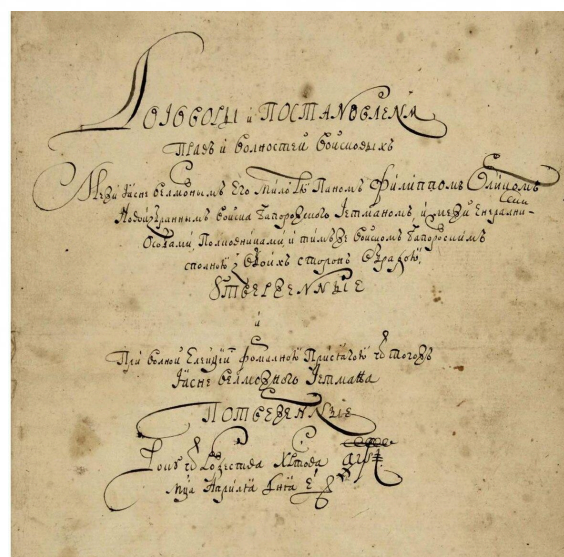 Договоры и Постановленѧ
Правъ и волностей войсковыхъ
Межи Ясне велможнымъ Его Млстю Паномъ Филиппомъ Орликомъ
Новоизбраннымъ войска Запорожского Гетманомъ, и межи Енералними
Особами, Полковниками, и тимъже войскомъ Запорожскимъ
сполною з обоихъ сторонъ обрадою
Утверженные
и
При волной Елекціи формалною Присягою ѿ тогожъ
Ясне велможного Гетмана
Потверженные
Року ѿ Рожества Христова
Мца Апрѣля Дня е҃